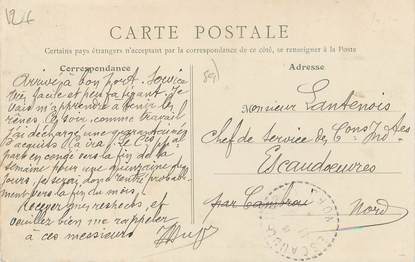 CARTE POSTALE
Certains pays étrangers n'acceptant par la correspondance de ce côté, se renseigner à la Poste
Correspondance
Adresse
Arrivé à bon port. Service
très facile et peu fatigant. Je
vais m'apprendre à tenir les
rênes. Ce soir, comme travail
j'ai déchargé une
acquits
part en congé vers la fin de la
semaine pour une quinzaine de
jours, je serai rentré
vers la fin du mois.
Recevez mes respects, et
veuillez bien me rappeler
à ces messieurs
Monsieur Lantenois
Chef de service des
Escaudoeuvres
par Cambrai
Nord